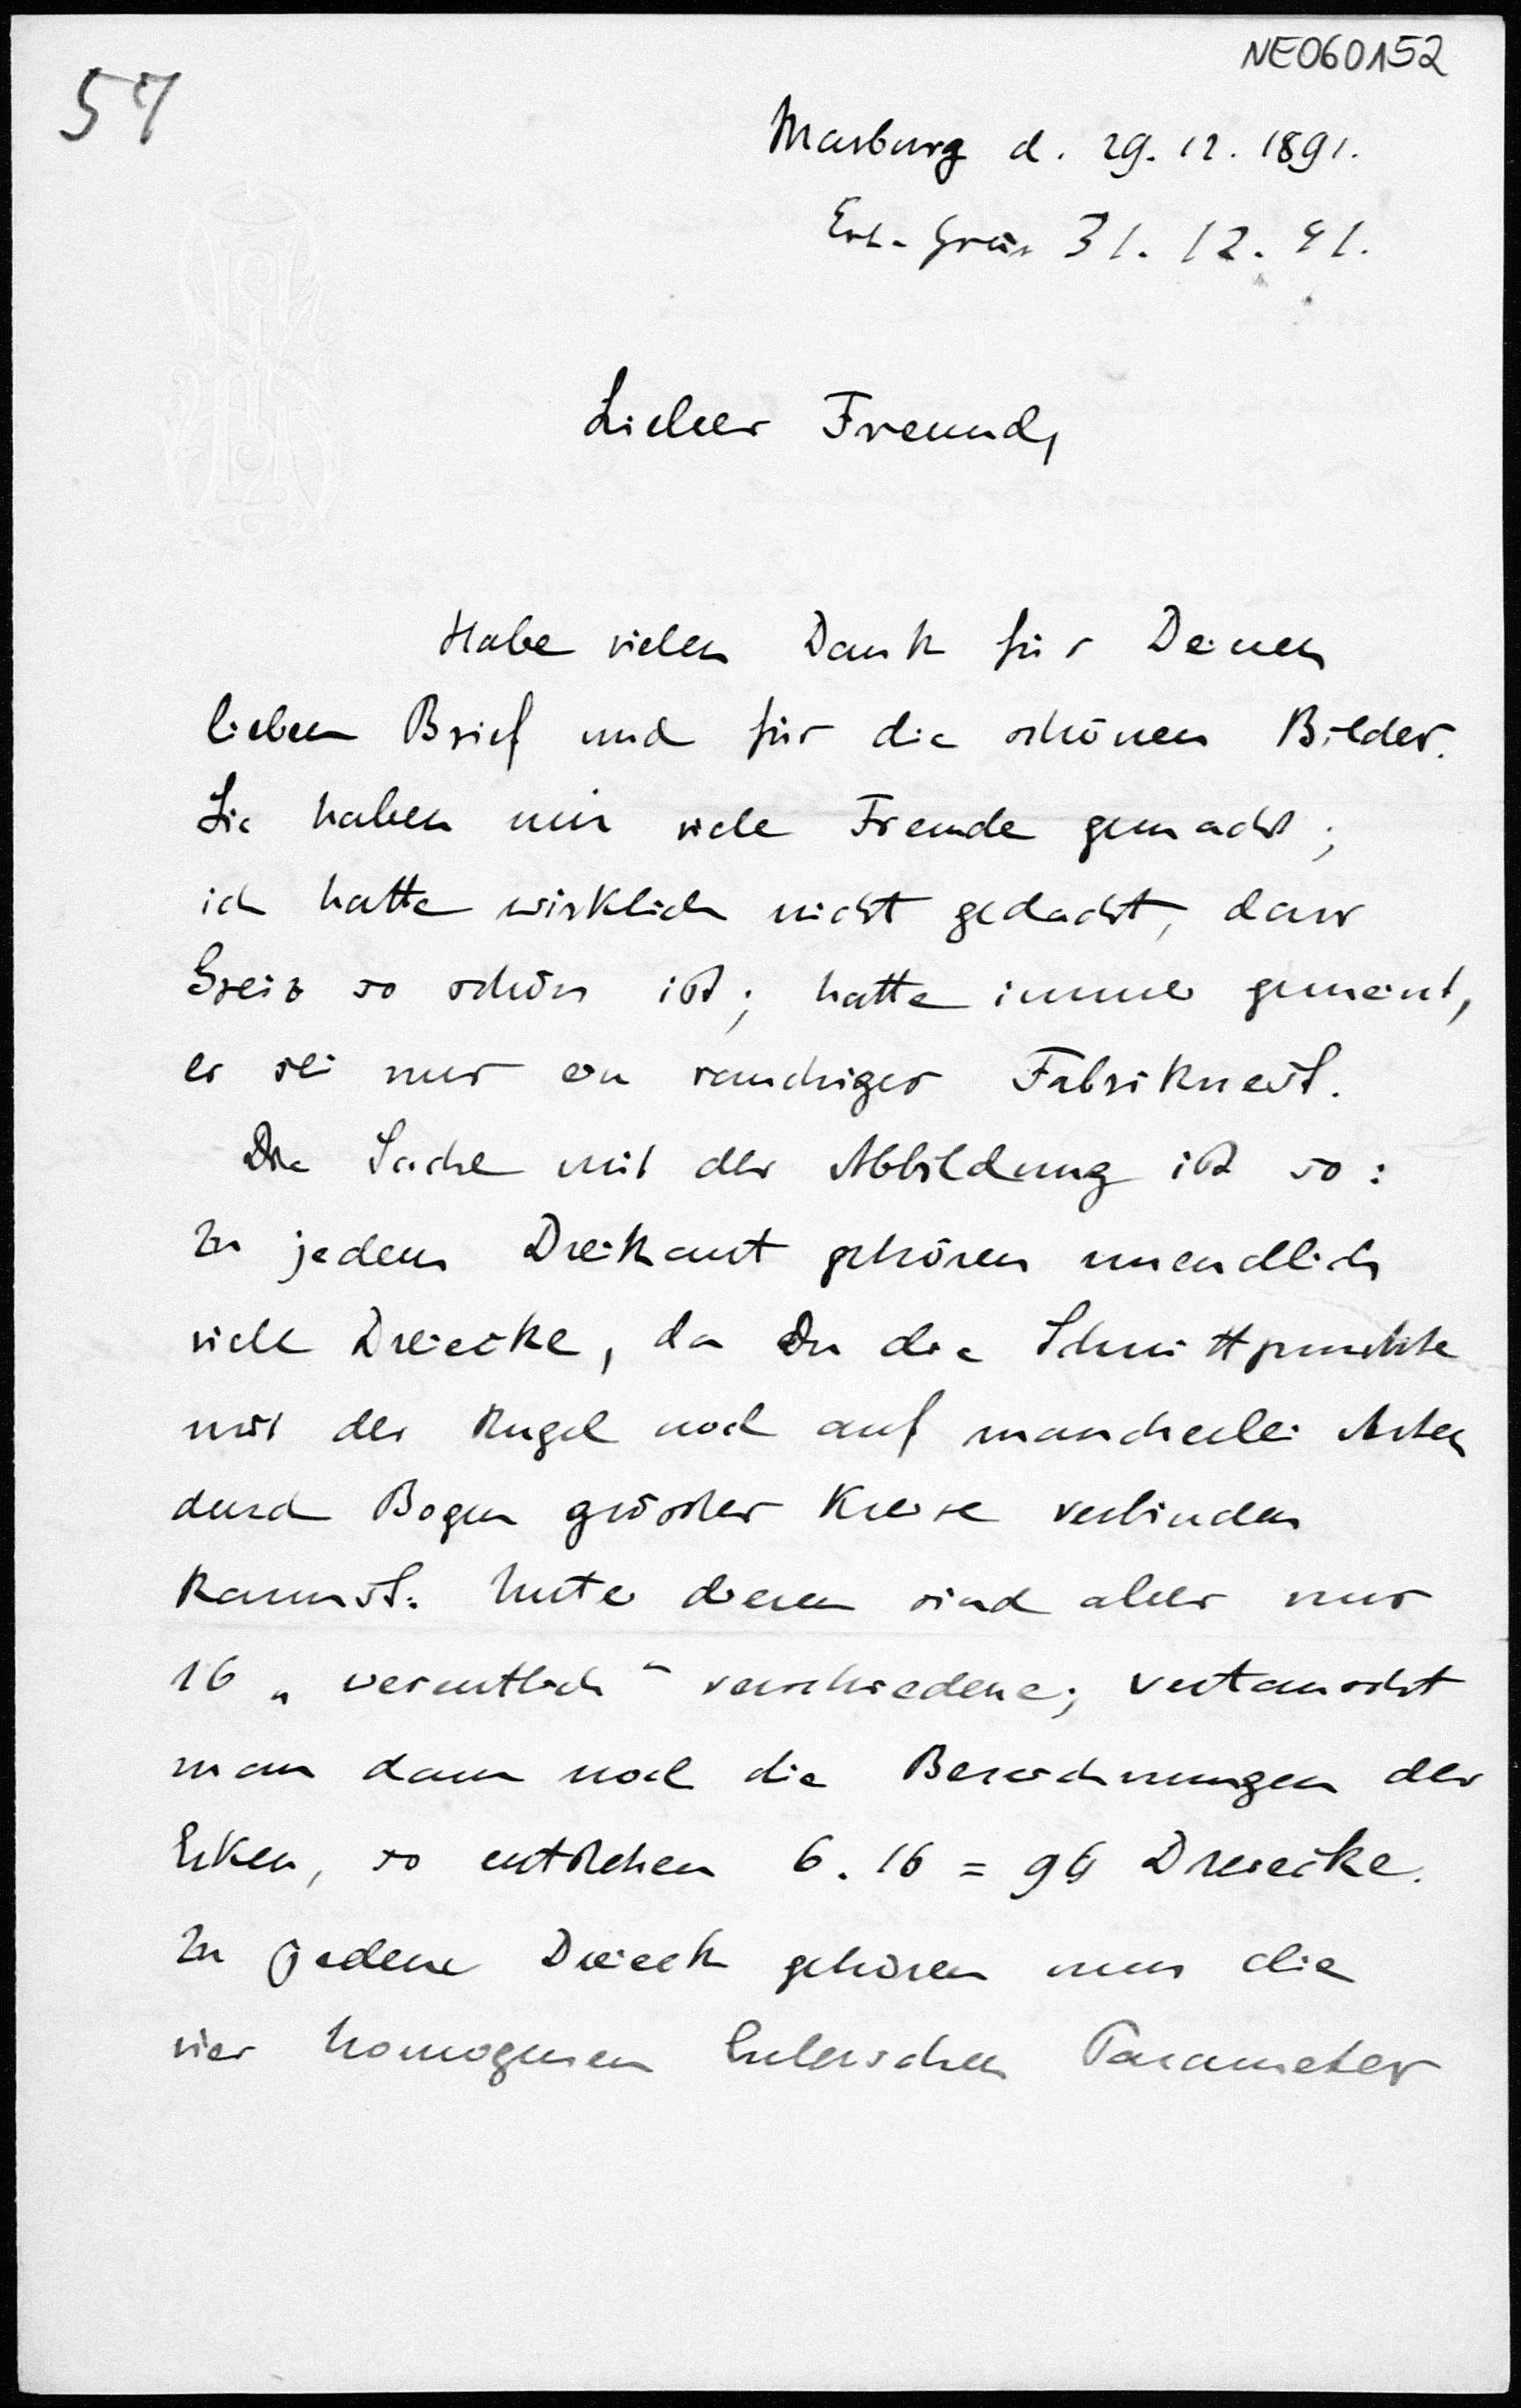 NE060152
57
Marburg d. 29. 12. 1891.
Erh. Greiz 31. 12. 91.
Lieber Freund,
Habe vielen Dank für Deinen
lieben Brief und für die schönen Bilder.
Sie haben mir viele Freude gemacht;
ich hatte wirklich nicht gedacht, dass
Greiz so schön ist; hatte immer gemeint,
es sei nur ein rauchiges Fabriknest.
Die Sache mit der Abbildung ist so:
Zu jedem Dreikant gehören unendlich
viele Dreiecke, da Du die Schnittpunkte
mit der Kugel noch auf mancherlei Arten
durch Bogen grösster Kreise verbinden
kannst. Unter diesen sind aber nur
16 „wesentlich“ verschiedene; vertauscht
man dann noch die Bezeichnungen der
Ecken, so entstehen 6. 16 = 96 Dreiecke.
Zu jedem Dreieck gehören nun die
vier homogenen Eulerschen Parameter